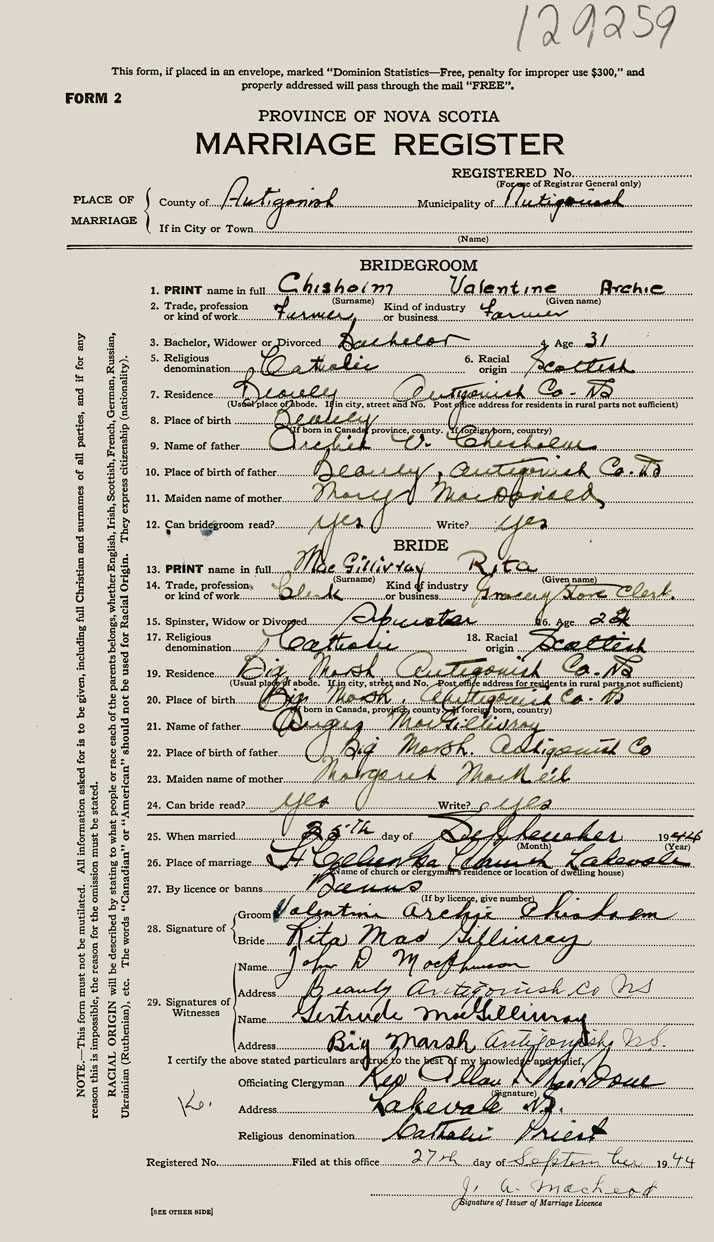 129259
This form, if placed in an envelope, marked "Dominion Statistics—Free, penalty for improper use $300," and
properly addressed will pass through the mail "FREE".
FORM 2
PROVINCE OF NOVA SCOTIA
MARRIAGE REGISTER
REGISTERED No.
(For use of Registrar General only)
PLACE OF MARRIAGE
County of Antigonish Municipality of Antigonish
If in City or Town
(Name)
BRIDEGROOM
1. PRINT name in full Chisholm Valentine Archie
(Surname) (Given name)
2. Trade, profession or kind of work Farmer Kind of industry or business Farmer
3. Bachelor, Widower or Divorced Bachelor 4. Age 31
5. Religious denomination Catholic 6. Racial origin Scottish
7. Residence Beauly Antigonish Co. NS
(Usual place of abode. If in city, street and No. Post office address for residents in rural parts not sufficient)
8. Place of birth Beauly
(If born in Canada, province, county. If foreign born, country)
9. Name of father Archie V. Chisholm
10. Place of birth of father Beauly, Antigonish Co. NS
11. Maiden name of mother Mary MacDonald
12. Can bridegroom read? yes Write? yes
BRIDE
13. PRINT name in full MacGillivray Rita
(Surname) (Given name)
14. Trade, profession or kind of work Clerk Kind of industry or business Grocery Store Clerk.
15. Spinster, Widow or Divorced Spinster 16. Age
17. Religious denomination Catholic 18. Racial origin Scottish
19. Residence Big Marsh Antigonish Co. NS
(Usual place of abode. If in city, street and No. Post office address for residents in rural parts not sufficient)
20. Place of birth Big Marsh, Antigonish Co. NS
(If born in Canada, province, county. If foreign born, country)
21. Name of father Angus MacGillivray
22. Place of birth of father Big Marsh. Antigonish Co
23. Maiden name of mother Margaret MacNeil
24. Can bride read? yes Write? yes
25. When married 25th day of September 1944
(Month) (Year)
26. Place of marriage Church Lakevale
(Name of church or clergyman's residence or location of dwelling house)
27. By licence or banns Banns
(If by licence, give number)
28. Signature of
Groom Valentine Archie Chisholm
Bride Rita MacGillivray
29. Signatures of Witnesses
Name John D MacPherson
Address Beauly Antigonish Co NS
Name Gertrude MacGillivray
Address Big Marsh Antigonish, N.S.
I certify the above stated particulars are true to the best of my knowledge and belief,
Officiating Clergyman Rev
(Signature)
Address Lakevale N.S.
Religious denomination Catholic Priest
Registered No. Filed at this office 27th day of September 1944
J. A. MacLeod
Signature of Issuer of Marriage Licence
[SEE OTHER SIDE]
NOTE.—This form must not be mutilated. All information asked for is to be given, including full Christian and surnames of all parties, and if for any
reason this is impossible, the reason for the omission must be stated.
RACIAL ORIGIN will be described by stating to what people or race each of the parents belongs, whether English, Irish, Scottish, French, German, Russian,
Ukrainian (Ruthenian), etc. The words "Canadian" or "American" should not be used for Racial Origin. They express citizenship (nationality).